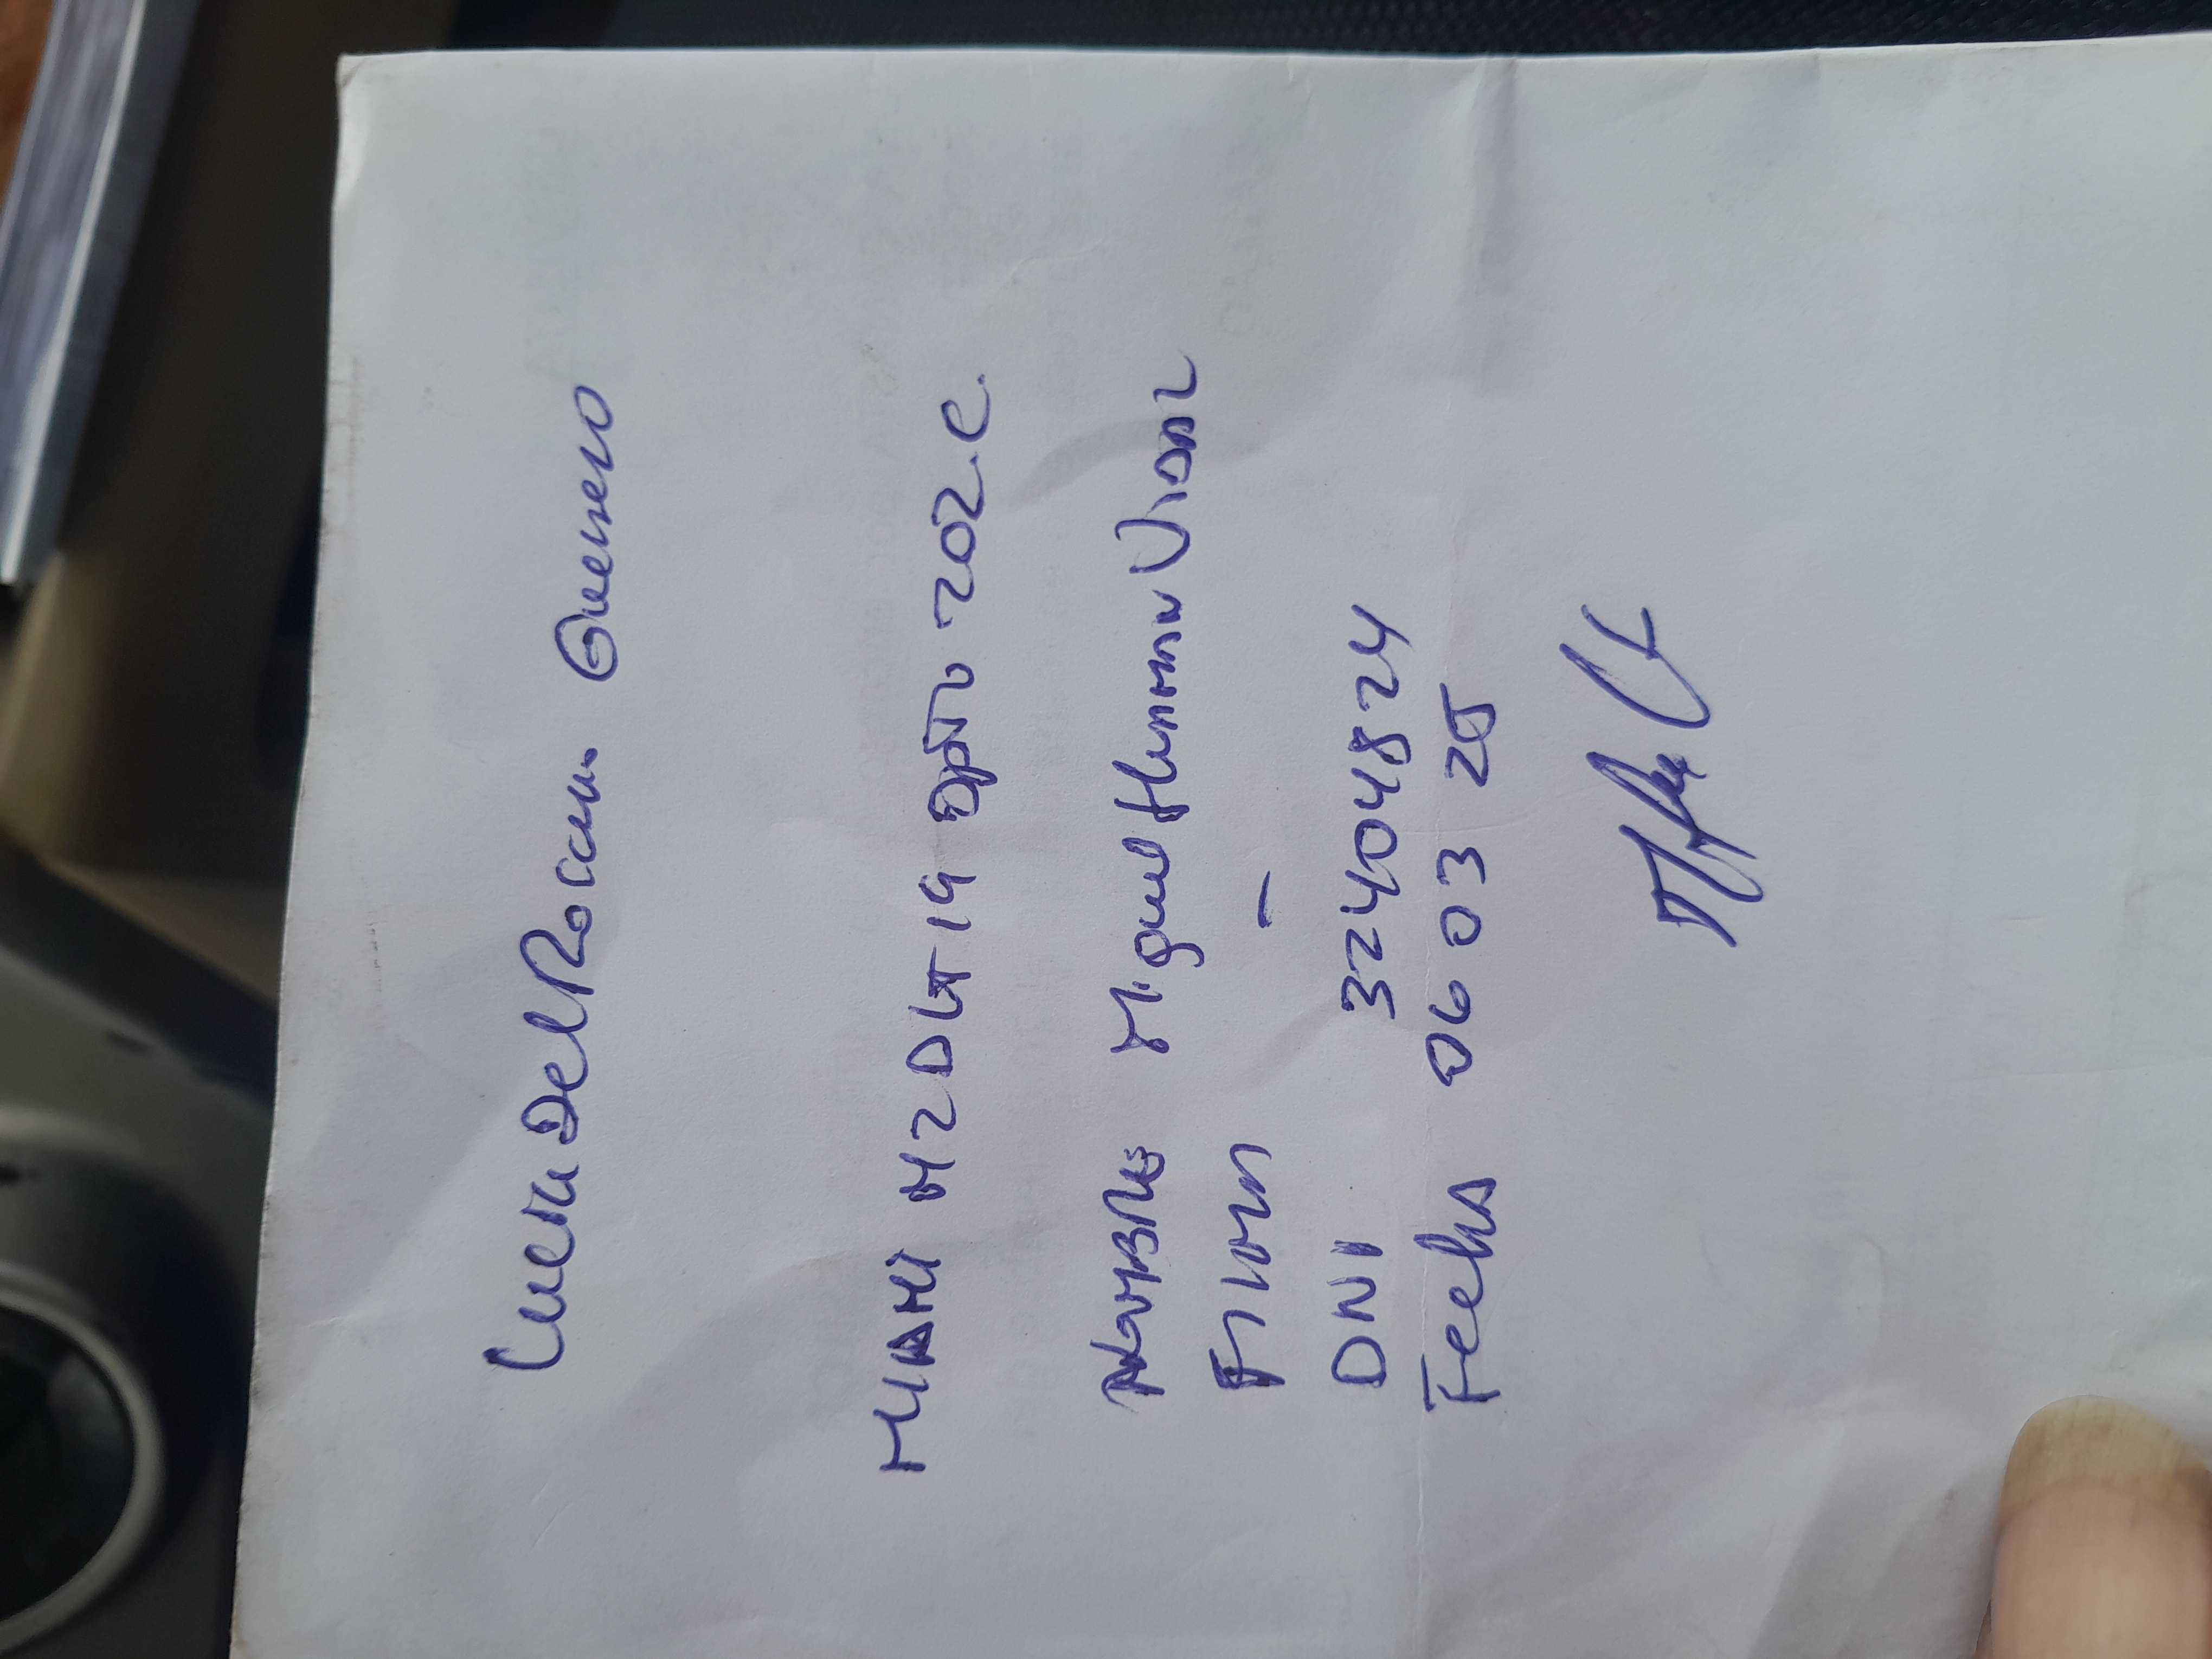 Lucia Del Rocio Guerrero
MIAMI MZ D LT 19 DPTO 202.C.
NOMBRE Miguel Huaman Vidal
FIRMA -
DNI 32404824
Fecha 06 03 25